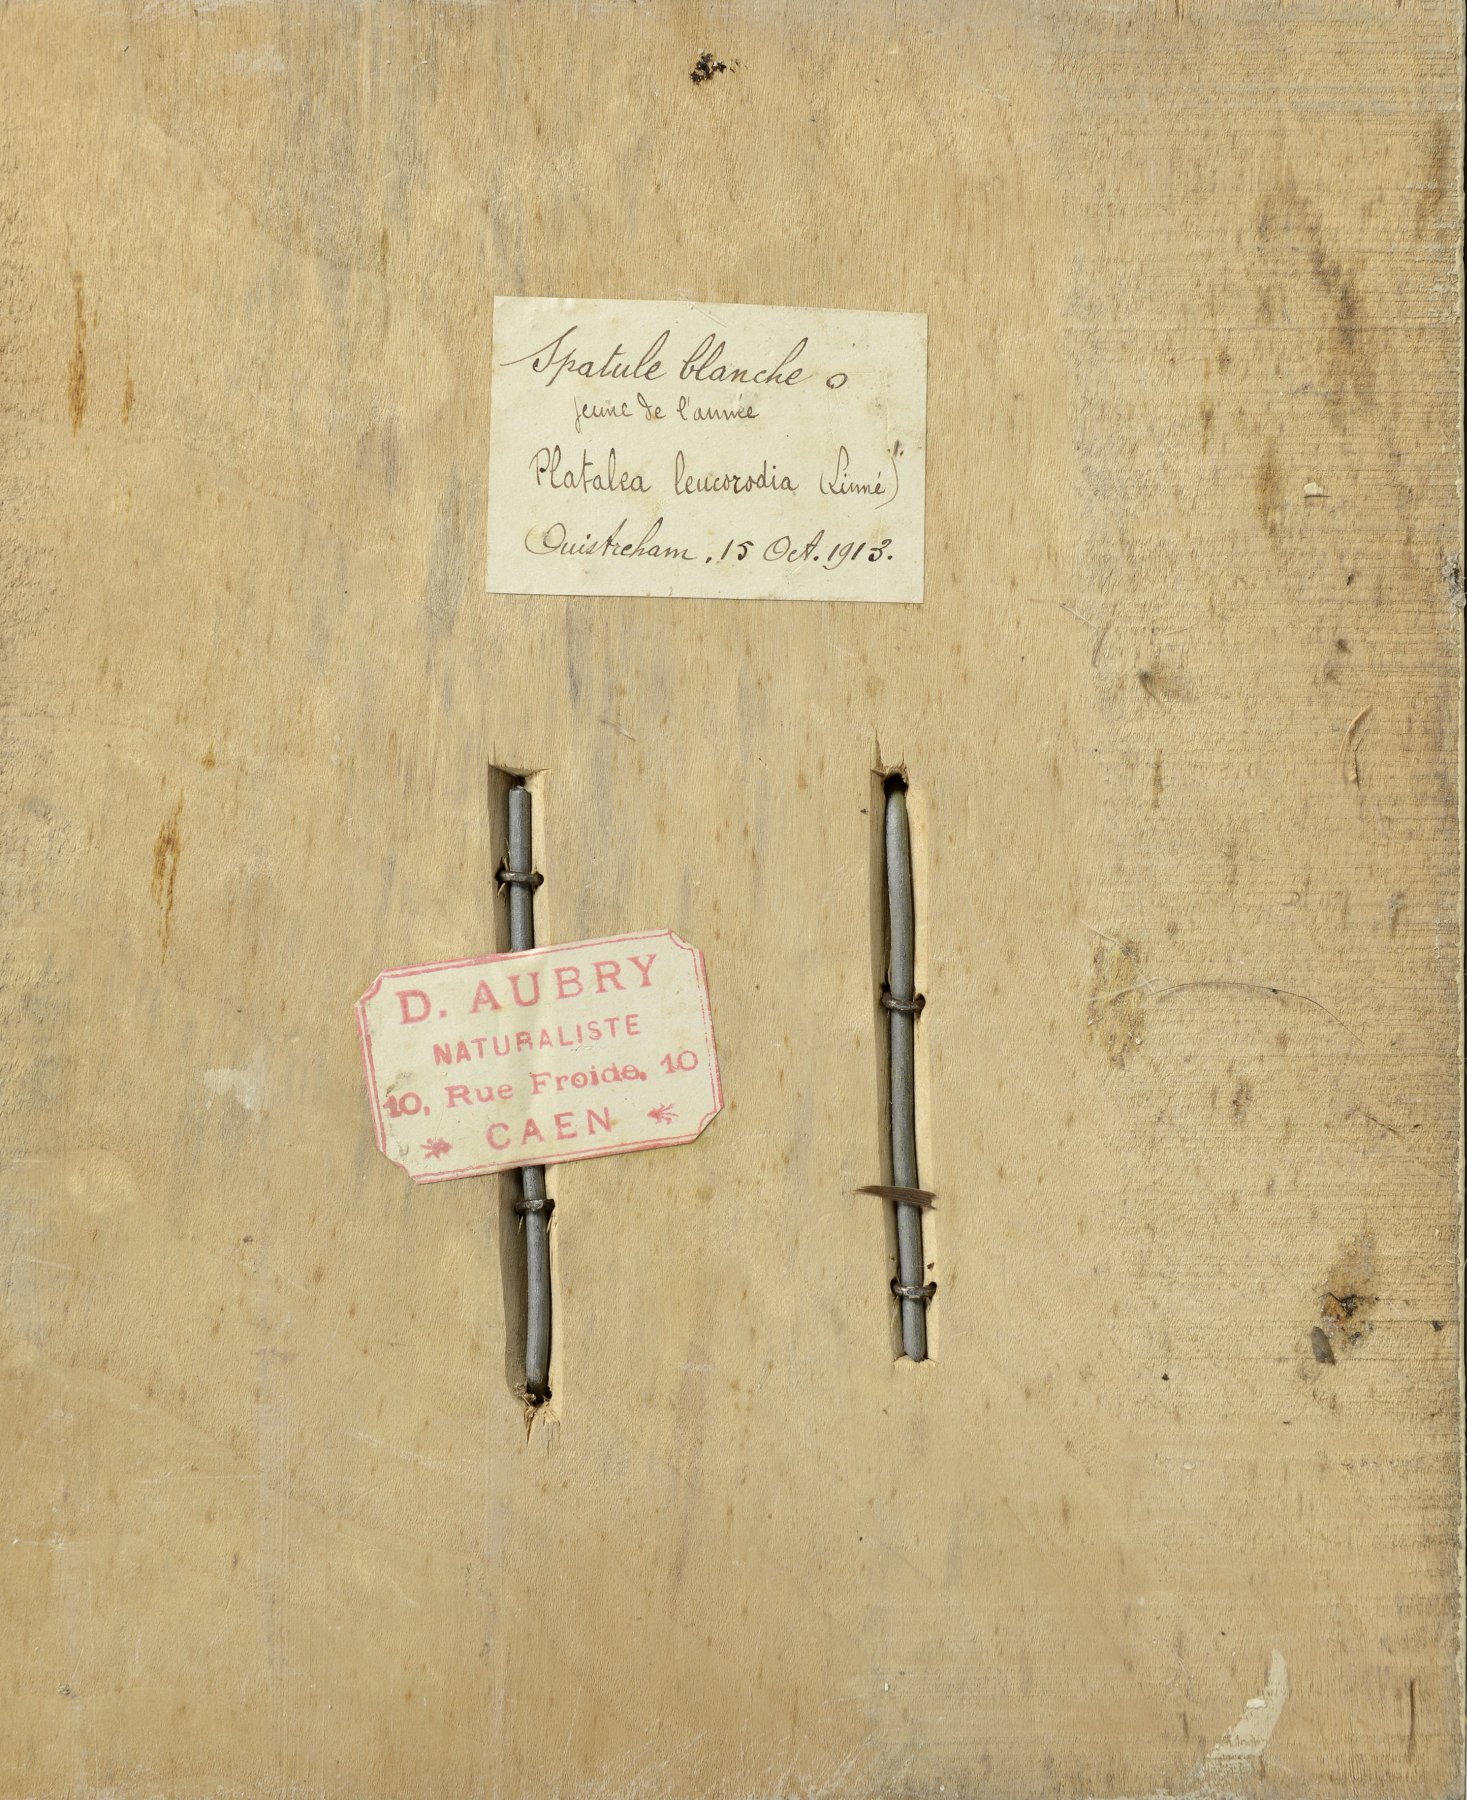 Spatule blanche o
jeune de l'année
Platalea leucorodia (Linné)
Ouistreham, 15 Oct. 1913.
D. AUBRY
NATURALISTE
10, Rue Froide, 10
CAEN